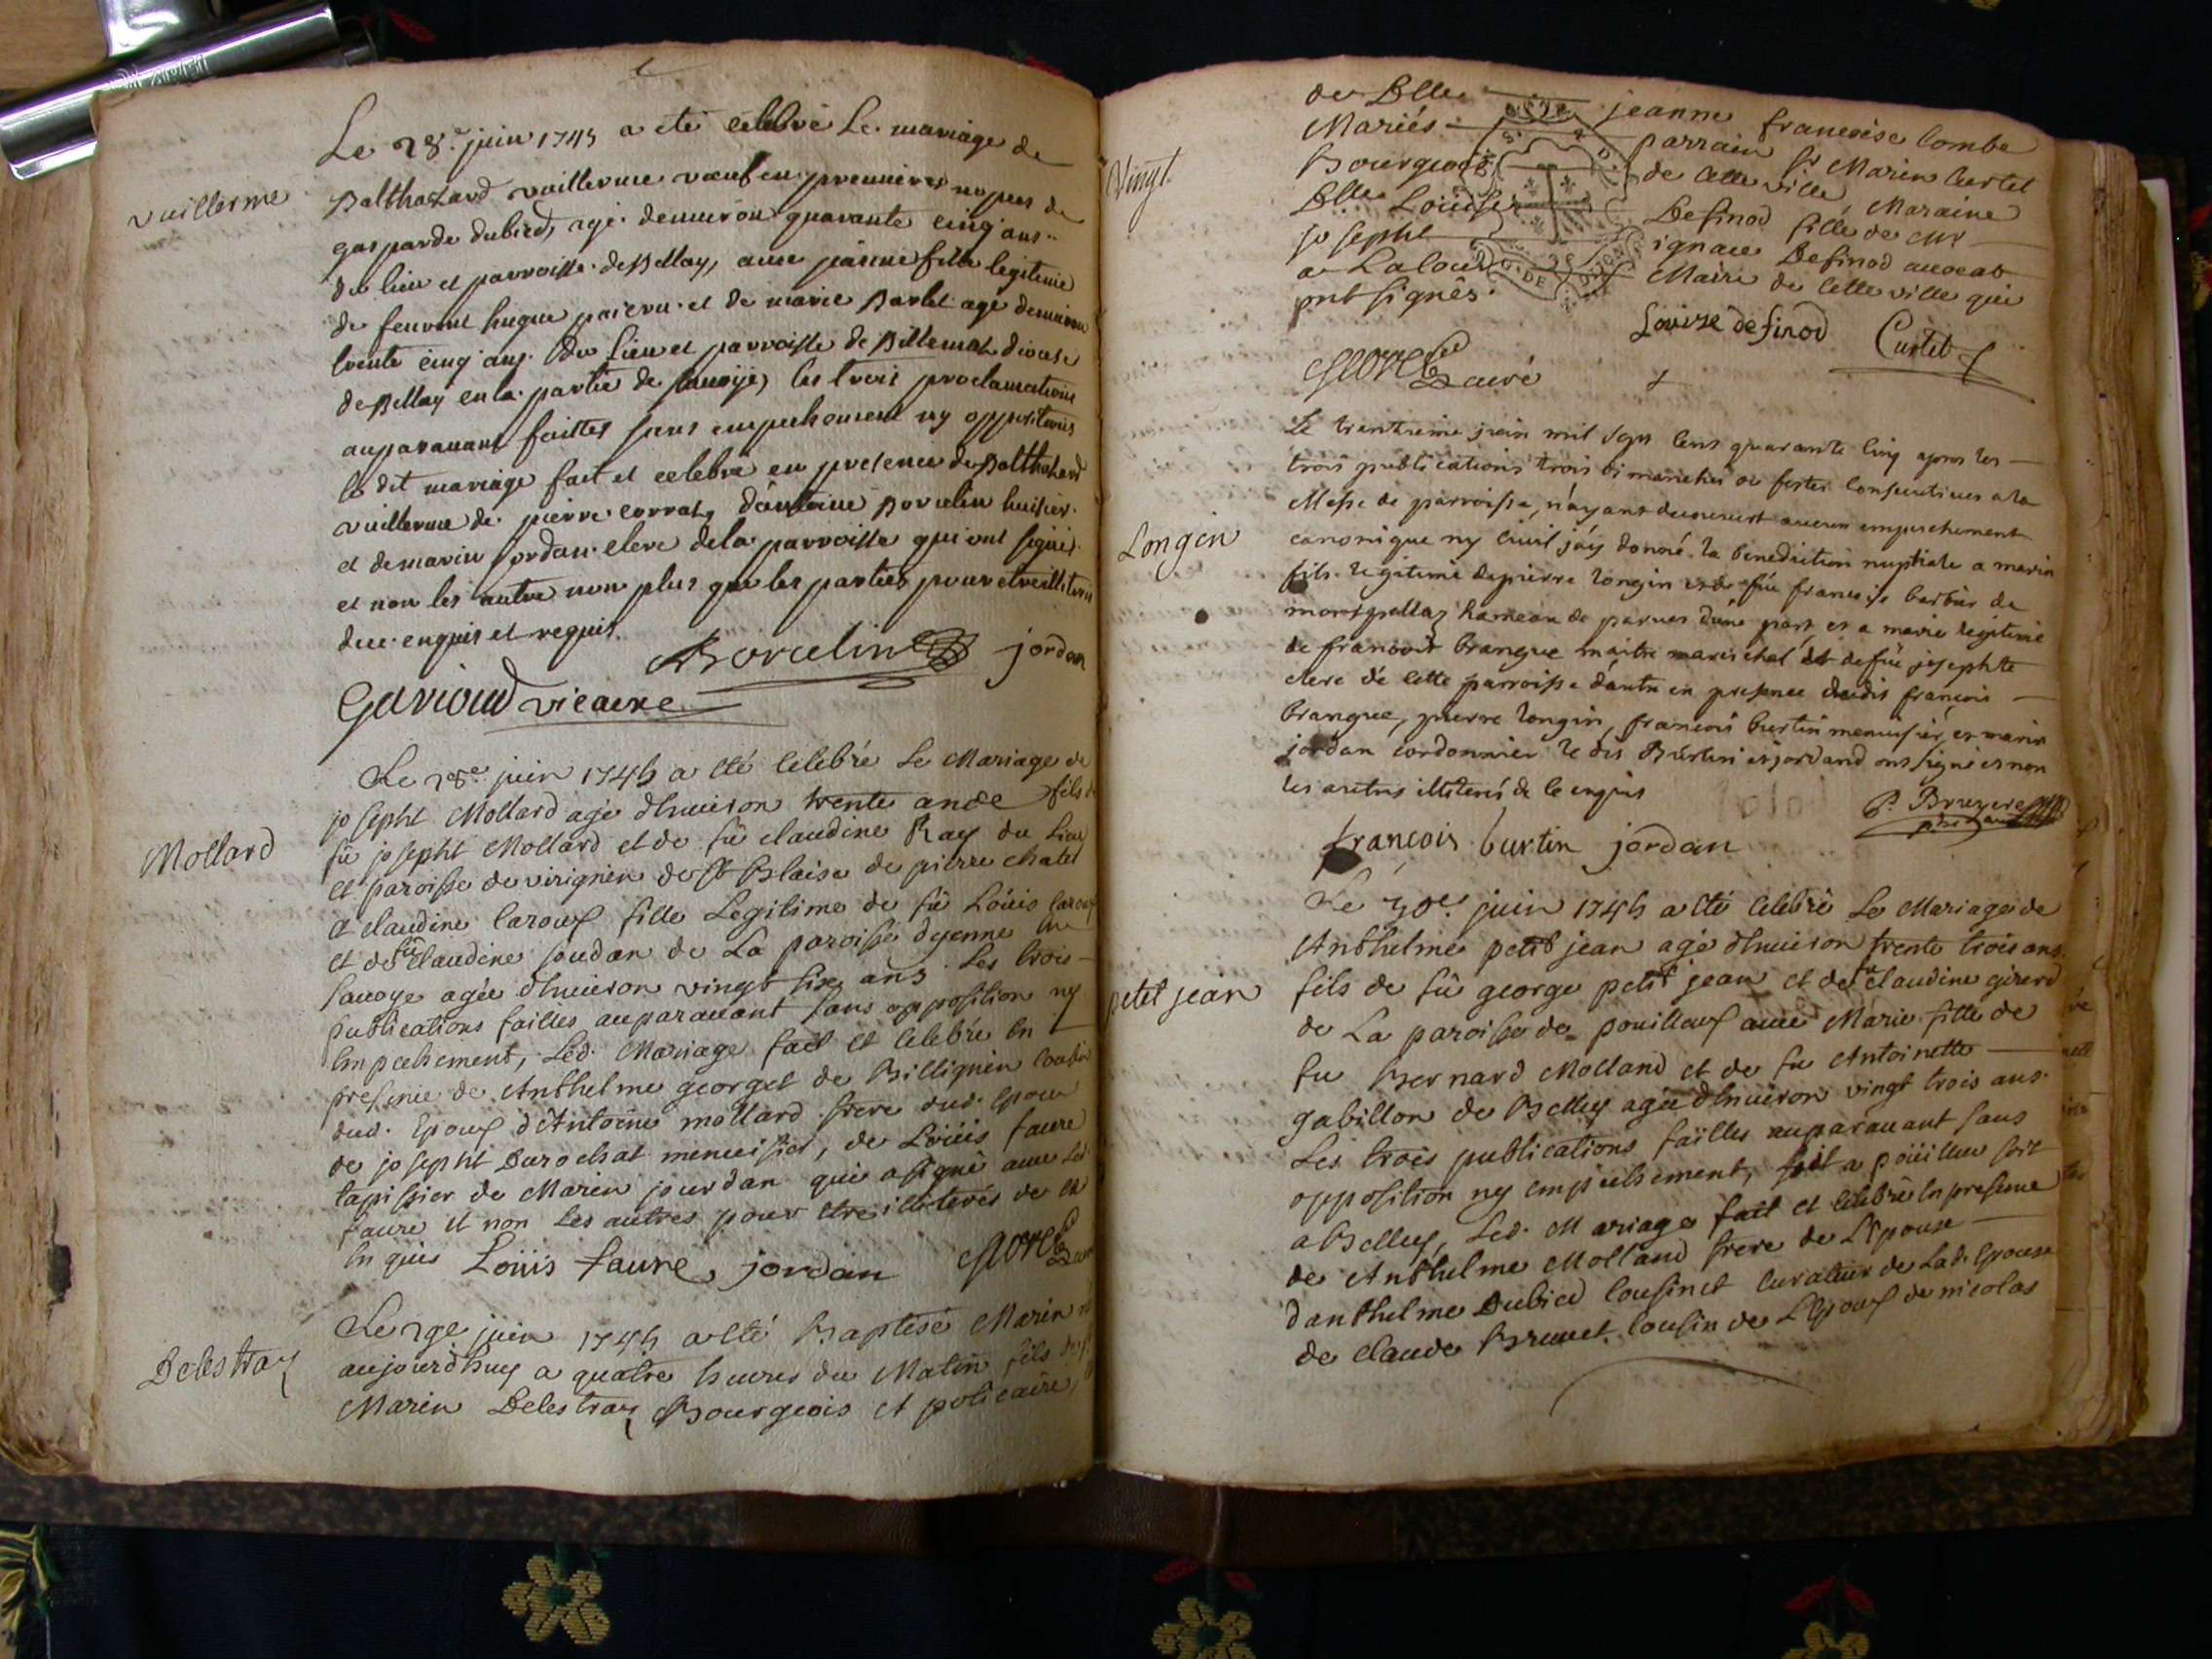 Le 28e juin 1745 a eté celebré Le mariage de
vuillerme
Balthazard vuillerme voeuf en premieres nopces de
gasparde dubied, agé denviron quarante cinq ans
du lieu et parroisse de Bellay, avec fille legitime
de feu hugue et de marie Barlet agé denviron
trente cinq ans du lieu et parroisse de Billemas diocese
de Bellay en la partie de savoije, les trois proclamations
auparavant faittes sans empechement ny oppositions
le dit mariage fait et celebré en presence de Balthazard
vuillerme de pierre corrat, d'antoine Borcelin huisier
et de marin jordan clerc de la parroisse qui ont signés
et non les autre non plus que les parties pour etre illiterés
due enquis et requis. Borcelin jordan
Gavioud vicaire
Le 28e juin 1745 a eté Celebré Le Mariage de
Mollard
josepht Mollard agé d'Environ trente ans fils de
fû josepht Mollard et de fû claudine Ray du Lieu
et paroisse de virignin de St Blaise de pierre chatel
et claudine Caroux fille Legitime de fû Loüis Caroux
et de fû claudine soudan de La paroisse d'yenne En
Savoye agée d'Environ vingt six ans. Les trois
publications faittes auparauant sans opposition ny
Empechement, Led. Mariage fait et Celebré En
presence de Anthelme georget de Billignin Cousin
dud. Epoux d'Antoine mollard frere dud. Epoux
de josepht Durochat menuisier, de Loüis faure
tapissier de Maren jourdan qui a signé avec Led.
faure et non Les autres pour etre illiterés de ce
Enquis Loüis faure, jordan
Le 29e juin 1745 a eté Baptisé Marin né
Delestraz
aujourd'huy a quatre heures du Matin fils de sr
Marin Delestraz Bourgeois et poticaire,
de Dlle jeanne françoise Combe
Mariés parrain sr Marin Curtet
Vingt
Bourgeois de Cette ville, Maraine
Dlle Loüise Definod fille de Mr
josepht ignace Definod avocat
a La Cour Maire de Cette ville qui
ont signés.
Louise definod Curtet
curé
Le trentieme juin mil sept cens quarante cinq apres les
trois publications trois dimanches ou festes consecutives a la
Messe de parroisse, n'ayant decouvert aucun empechement
Longin
canonique ny civil j'ay donné la benediction nuptiale a marin
fils legitime de pierre longin et de fûe françoise barbier de
montpellaz hameau de parves d'une part et a marie legitime
de francois brangue maitre marechal et de fûe josephte
clerc de cette parroisse d'autre en presence dudit francois
brangue, pierre longin, francois burtin menuisier, et marin
jordan cordonnier le dis Burtin et jordand ont signé et non
les autres illiterés de ce enquis
P. Bruyere
françois burtin jordan
Le 30e juin 1745 a eté Celebré Le Mariage de
Anthelme petit jean agé d'Environ trente trois ans
petit jean
fils de fû george petit jean et de fû claudine girerd
de La paroisse de pouilleux avec Marie fille de
fu Bernard Molland et de fu Antoinette
gabillon de Belley agée d'Environ vingt trois ans.
Les trois publications faittes auparauant sans
opposition ny empechement, soit a poüilleu soit
a Belley, Led. Mariage fait et celebré En presence
de Anthelme Molland frere de L'Epouse
d'anthelme Dubied Cousin et Curateur de Lad. Epouse
de claude Brunet Cousin de L'Epoux de nicolas